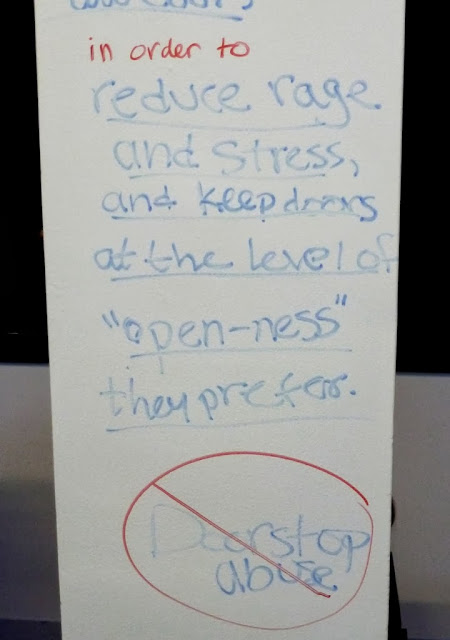 in order to
reduce rage
and stress,
and keep doors
at the level of
"open-ness"
they prefer.
Doorstop
abuse